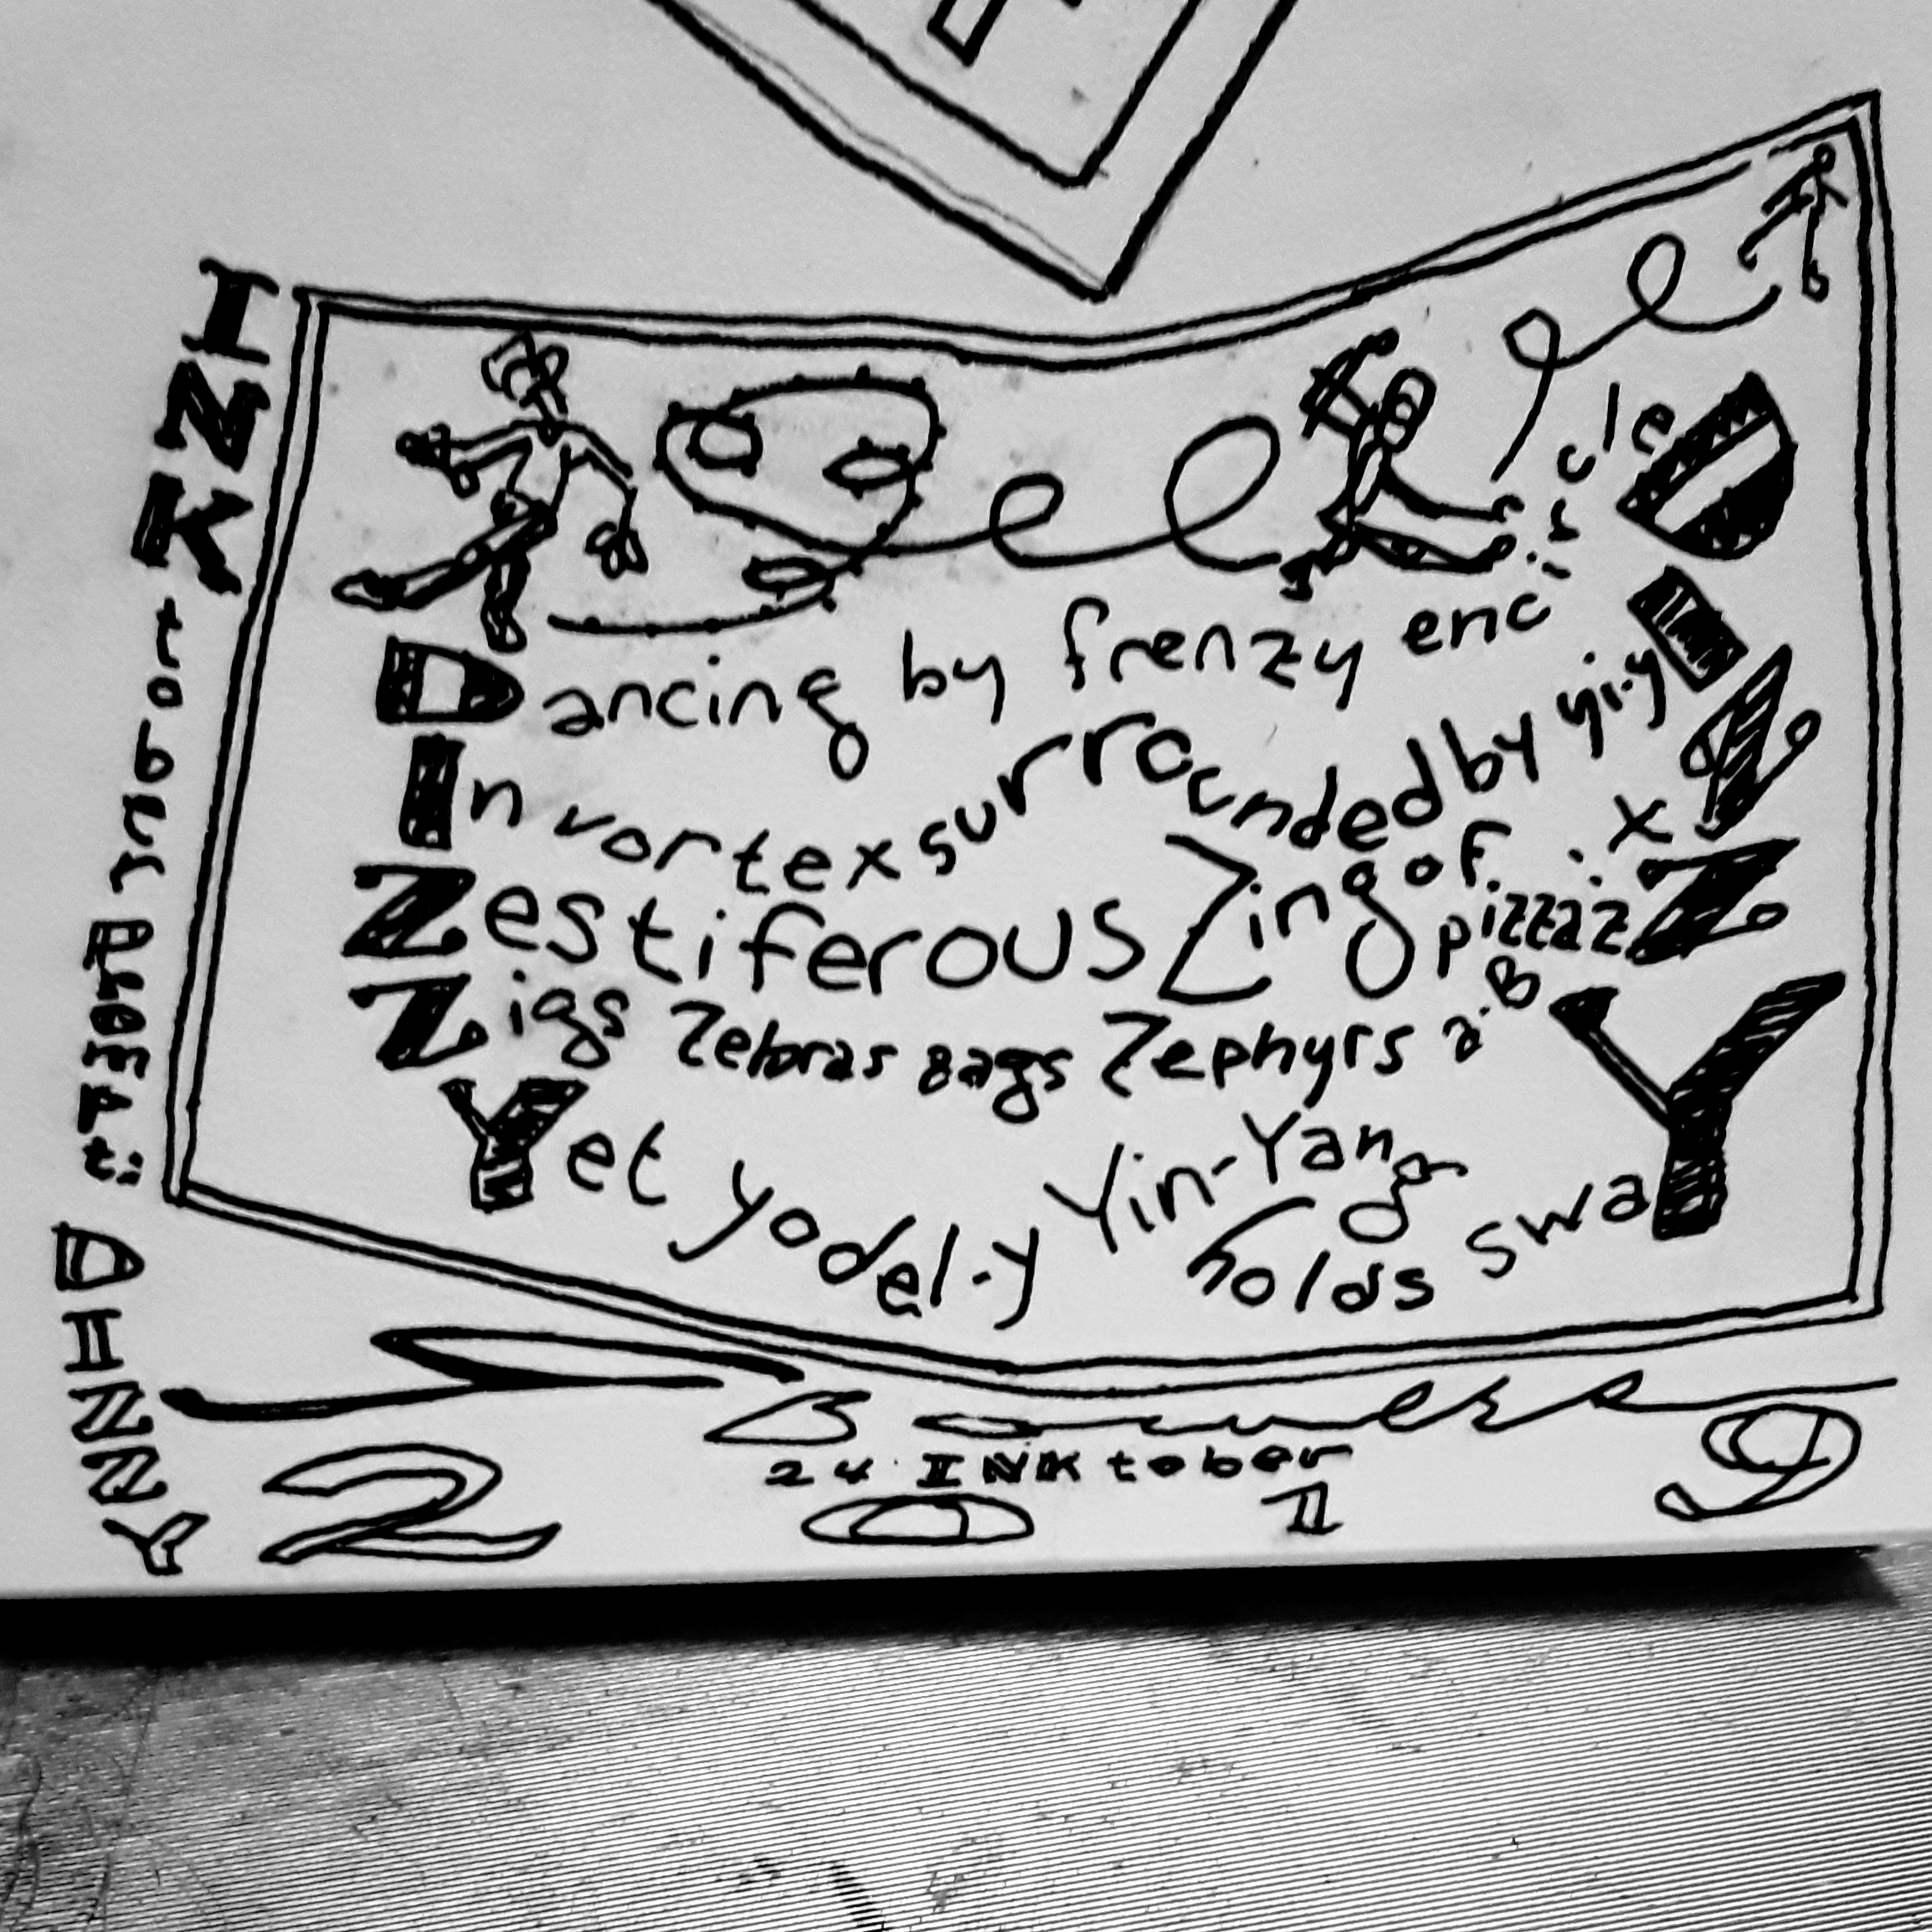 INKtober Prompt:
DIZZY
Dancing by frenzy encircleD
In vortex surrounded by yi-yI
Zestiferous Zing of pizzaz Z
Zigs Zebras Bags Zephyrs
Yet yodel-y Yin-Yang holds swaY
24 INKtober
2019